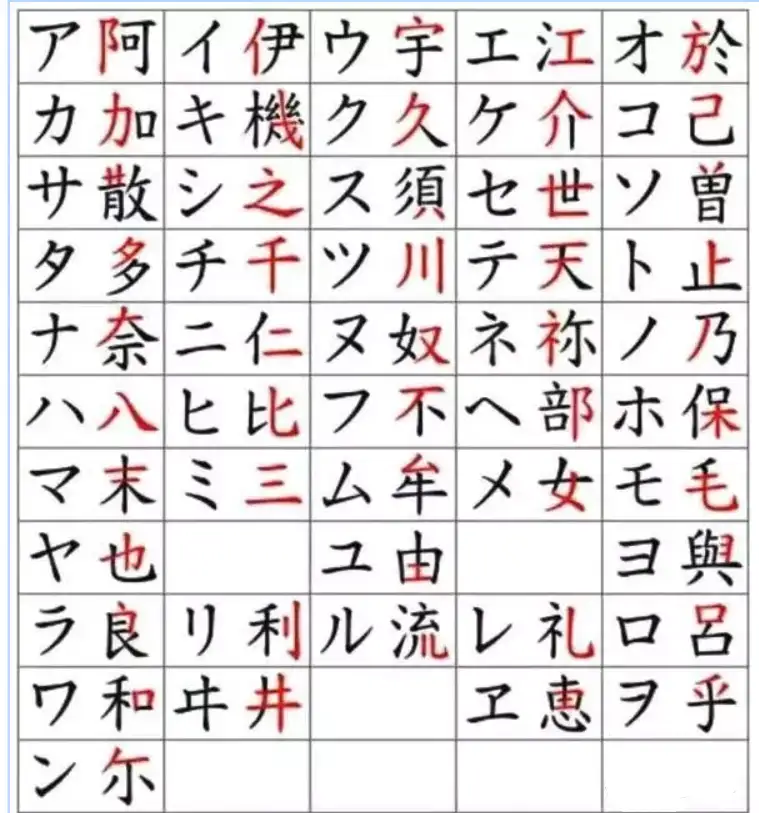 ア 阿 イ 伊 ウ 宇 エ 江 オ 於
カ 加 キ 機 ク 久 ケ 介 コ 己
サ 散 シ 之 ス 須 セ 世 ソ 曽
タ 多 チ 千 ツ 川 テ 天 ト 止
ナ 奈 ニ 仁 ヌ 奴 ネ 祢 ノ 乃
ハ 八 ヒ 比 フ 不 ヘ 部 ホ 保
マ 末 ミ 三 ム 牟 メ 女 モ 毛
ヤ 也 ユ 由 ヨ 與
ラ 良 リ 利 ル 流 レ 礼 ロ 呂
ワ 和 ヰ 井 ヱ 恵 ヲ 乎
ン 尓